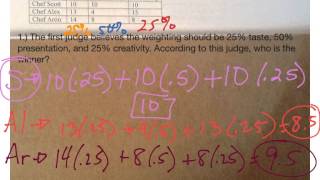 Chef Scott 10 10 10
Chef Alex 13 4 13
Chef Aron 14 8 8
25% 50% 25%
1.) The first judge believes the weighting should be 25% taste, 50%
presentation, and 25% creativity. According to this judge, who is the
winner?
S → 10(.25) + 10(.5) + 10(.25)
10
Al → 13(.25) + 4(.5) + 13(.25) = 8.5
Ar → 14(.25) + 8(.5) + 8(.25) = 9.5